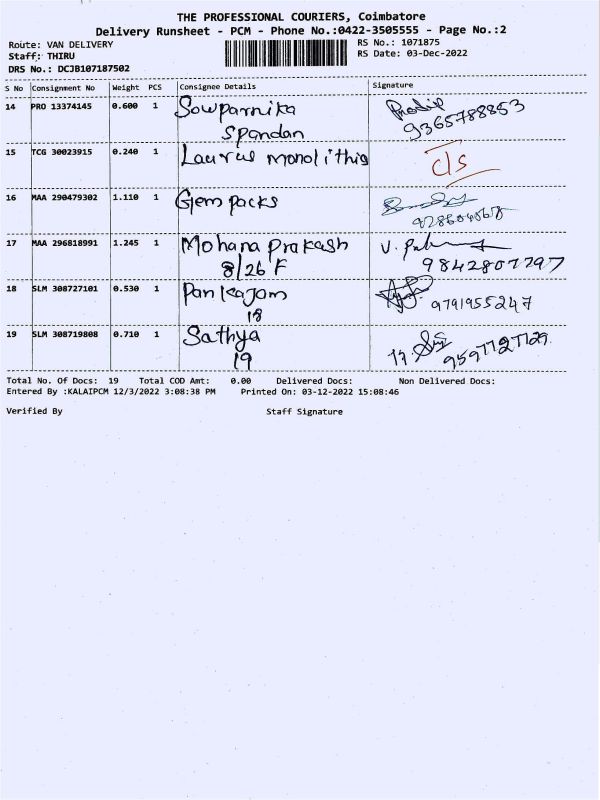 THE PROFESSIONAL COURIERS, Coimbatore
Delivery Runsheet - PCM - Phone No.:0422-3505555 - Page No.:2
Route: VAN DELIVERY
RS No.: 1071875
Staff: THIRU
RS Date: 03-Dec-2022
DRS No.: DCJB107187502
S No Consignment No Weight PCS Consignee Details Signature
14 PRO 13374145 0.600 1 Sowparnika
Spandan
9365788853
15 TCG 30023915 0.240 1 Laurus monolithis c/s
16 MAA 290479302 1.110 1 Gem packs
17 MAA 296818991 1.245 1 Mohana Prakash V.
8/26 F 9842807797
18 SLM 308727101 0.530 1 Pankajam 9791955247
18
19 SLM 308719808 0.710 1 Sathya
19 9597727129
Total No. Of Docs: 19 Total COD Amt: 0.00 Delivered Docs: Non Delivered Docs:
Entered By :KALAIPCM 12/3/2022 3:08:38 PM Printed On: 03-12-2022 15:08:46
Verified By Staff Signature